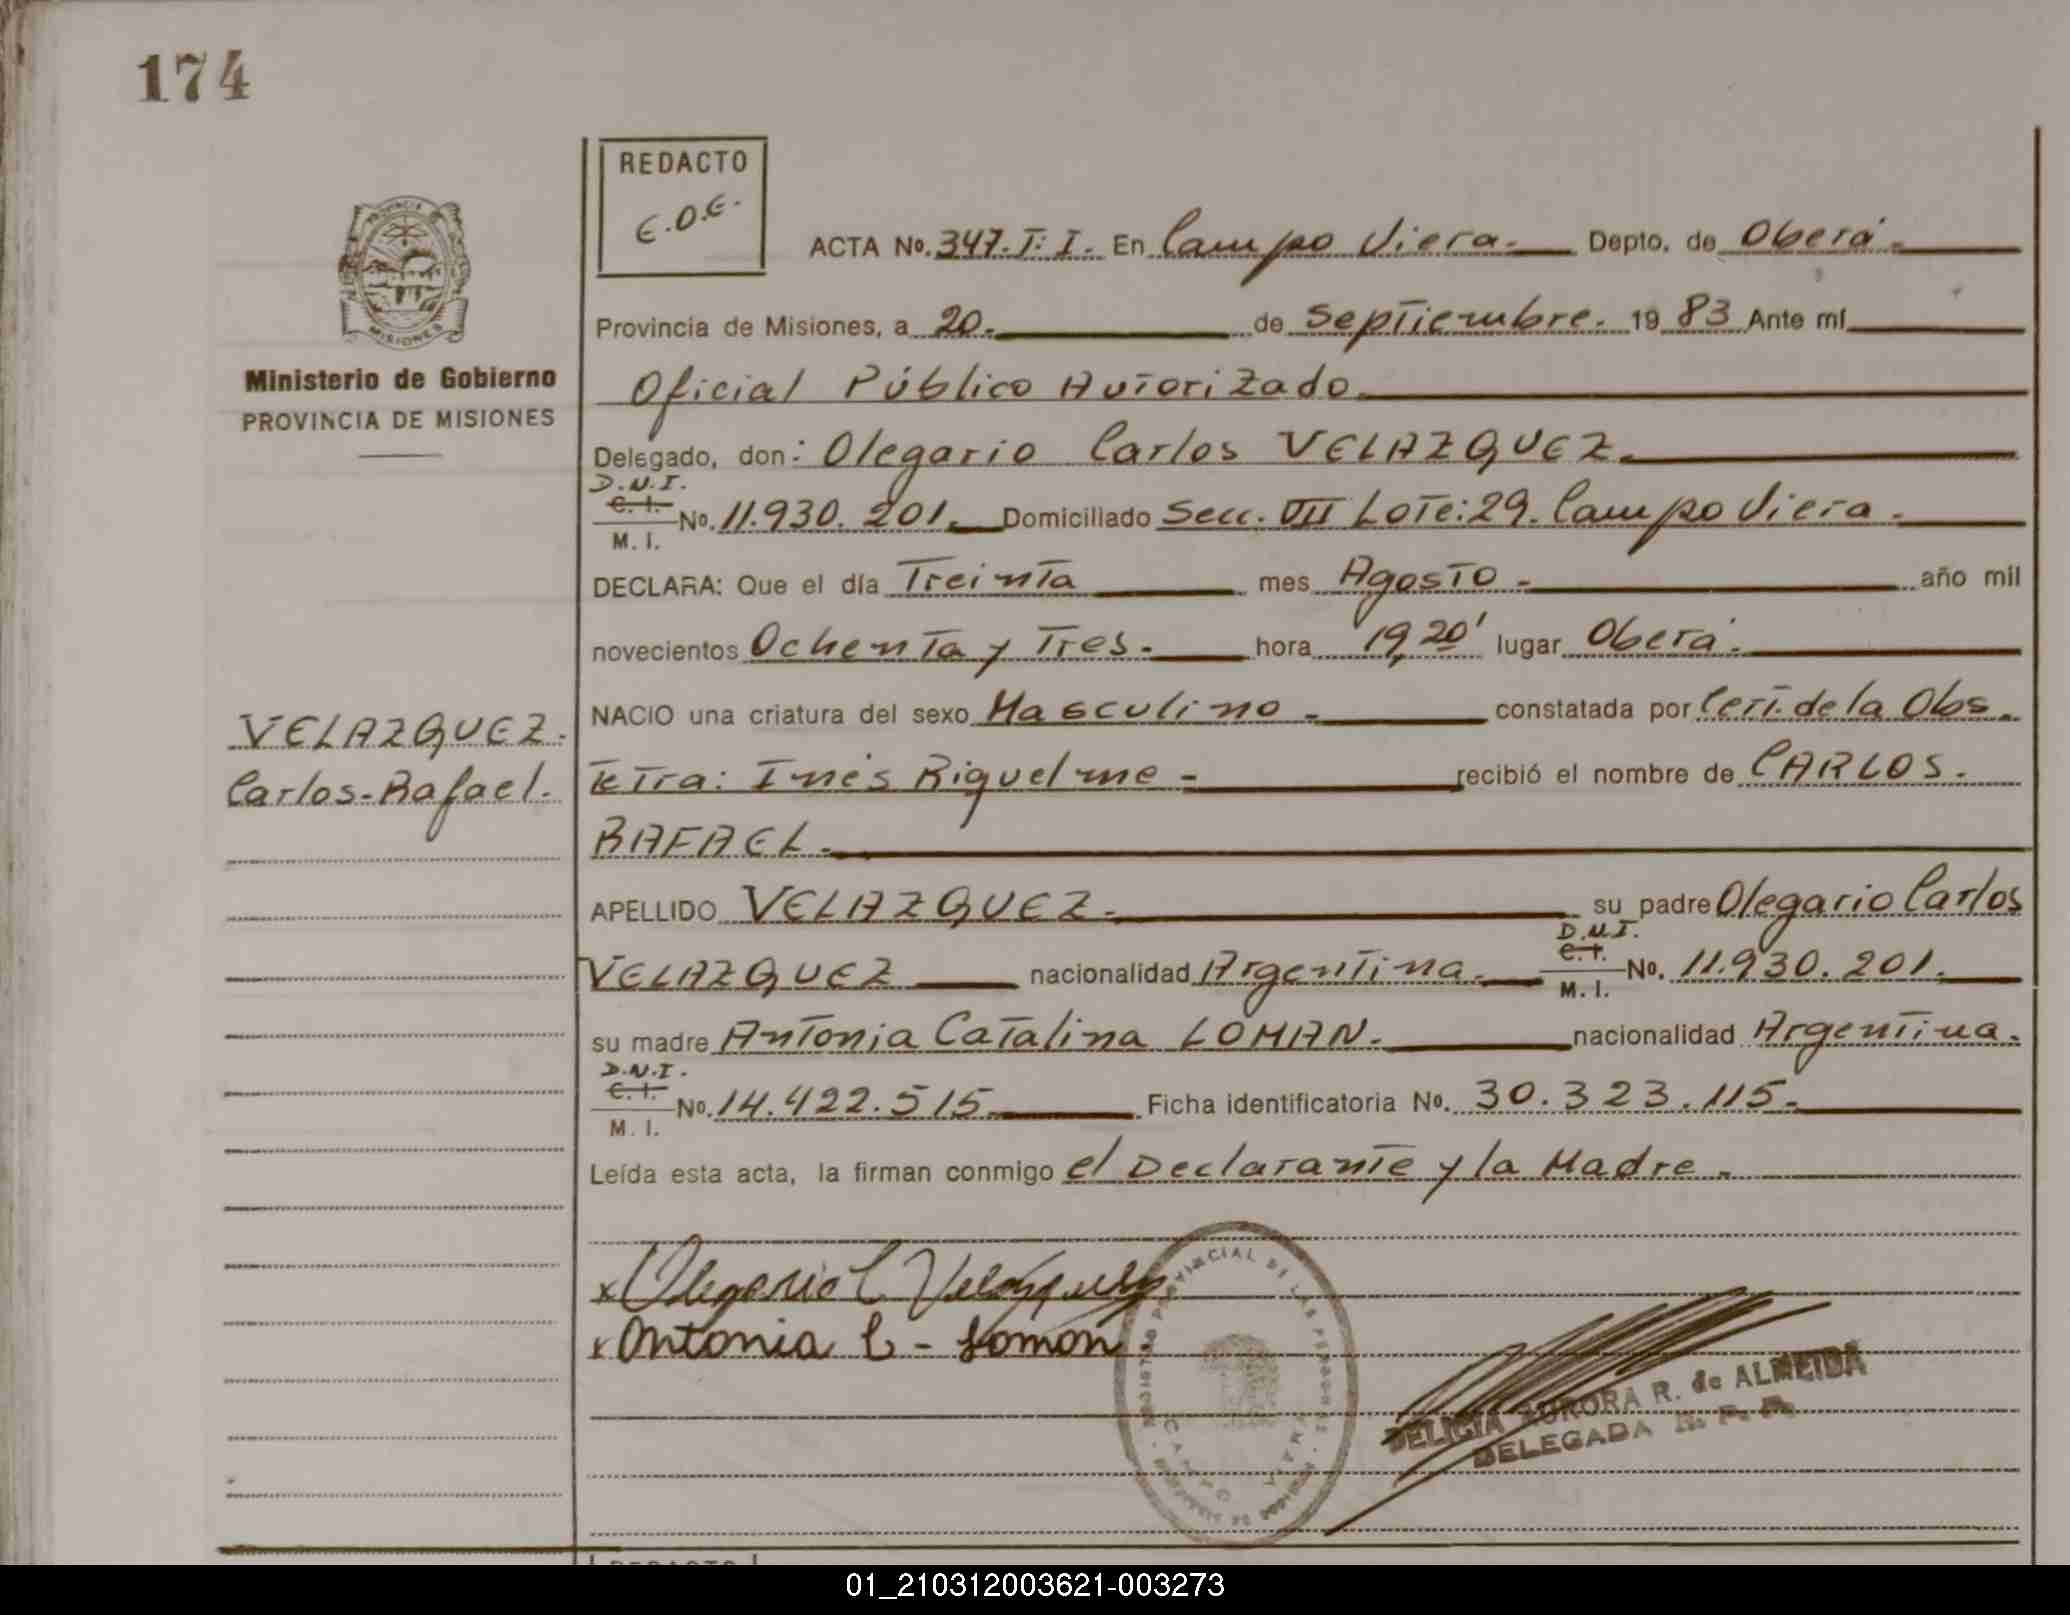 174
REDACTO
E.O.E.
ACTA No. 347. T: I. En Campo Viera. Depto. de Oberá.
Provincia de Misiones, a 20. de Septiembre. 1983 Ante mí
Oficial Público Autorizado.
Delegado, don: Olegario Carlos VELAZQUEZ.
D.N.I.
C. I.
M. I.
No. 11.930.201. Domiciliado Secc. VIII Lote: 29. Campo Viera.
DECLARA: Que el día Treinta mes Agosto - año mil
novecientos Ochenta y Tres. hora 19,20' lugar Oberá.
NACIO una criatura del sexo Masculino - constatada por Cert. de la Obs.
tetra: Inés Riquelme - recibió el nombre de CARLOS.
RAFAEL.
APELLIDO VELAZQUEZ. su padre Olegario Carlos
VELAZQUEZ nacionalidad Argentina. D.N.I. C. I. M. I. No. 11.930.201.
su madre Antonia Catalina LOMAN. nacionalidad Argentina.
D.N.I.
C. I.
M. I.
No. 14.422.515 Ficha identificatoria No. 30.323.115.
Leída esta acta, la firman conmigo el Declarante y la Madre.
x Olegario C Velázquez
x Antonia C - Loman
DELICIA AURORA R. de ALMEIDA
DELEGADA R. P. P.
PROVINCIA
MISIONES
Ministerio de Gobierno
PROVINCIA DE MISIONES
VELAZQUEZ.
Carlos-Rafael.
REDACTO
01_210312003621-003273